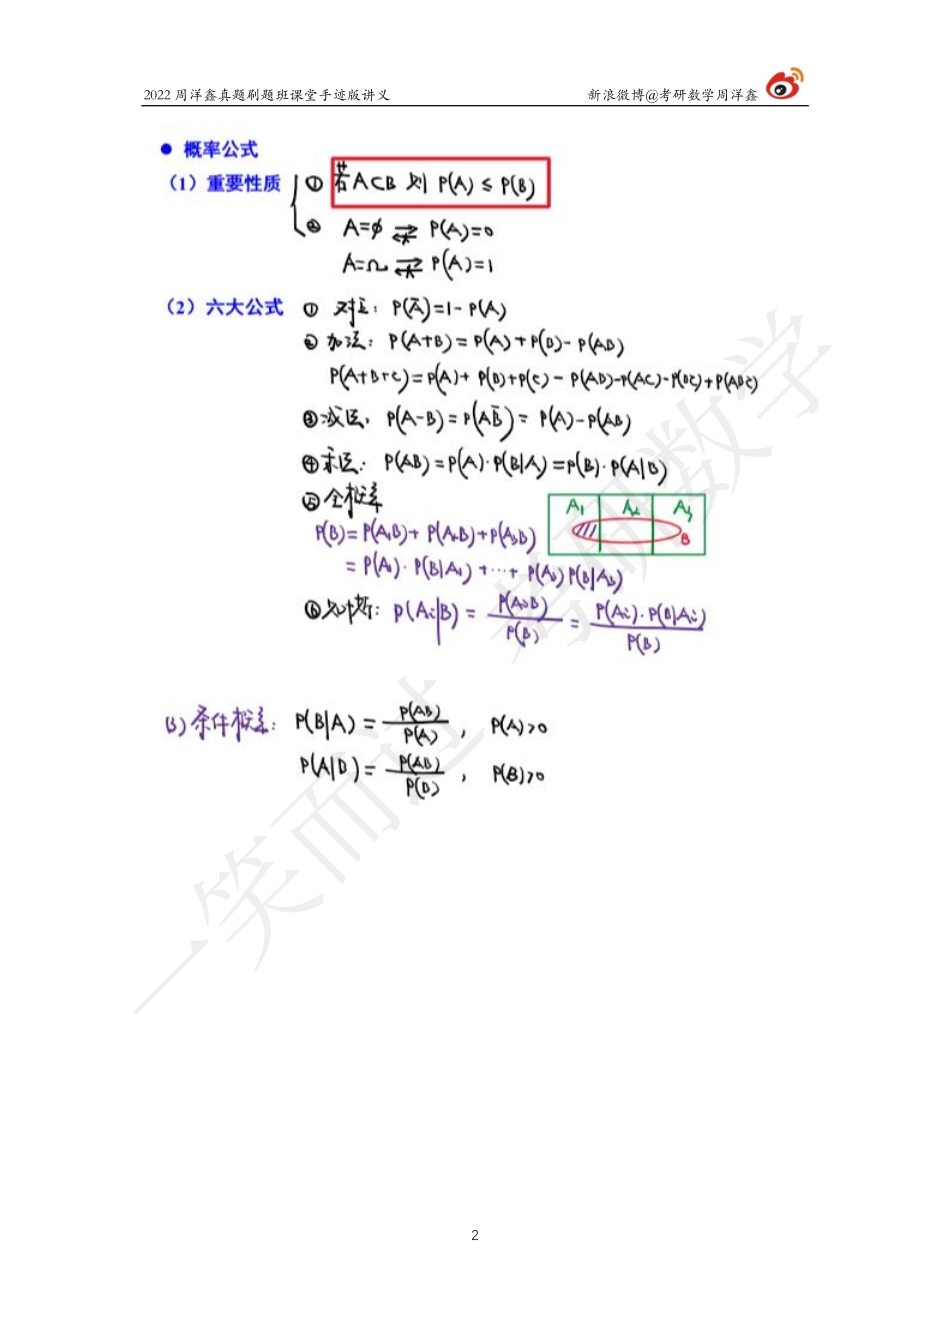 2022 周洋鑫真题刷题班课堂手迹版讲义 新浪微博@考研数学周洋鑫
● 概率公式
（1）重要性质 ① 若A⊂B 则 P(A) ≤ P(B)
② A=∅ ⇄ P(A)=0
A=Ω ⇄ P(A)=1
（2）六大公式 ① 对立: P(A̅)=1-P(A)
② 加法: P(A+B)=P(A)+P(B)-P(AB)
P(A+B+C)=P(A)+P(B)+P(C)-P(AB)-P(AC)-P(BC)+P(ABC)
③ 减法: P(A-B)=P(AB̅)=P(A)-P(AB)
④ 乘法: P(AB)=P(A)·P(B|A)=P(B)·P(A|B)
⑤ 全概率
A₁ A₂ A₃
B
P(B)=P(A₁B)+P(A₂B)+P(A₃B)
=P(A₁)·P(B|A₁)+···+P(A₃)P(B|A₃)
⑥ 贝叶斯: P(Aᵢ|B)=P(AᵢB)/P(B)=P(Aᵢ)·P(B|Aᵢ)/P(B)
(3) 条件概率: P(B|A)=P(AB)/P(A), P(A)>0
P(A|B)=P(AB)/P(B), P(B)>0
一笑而过 考研数学
2